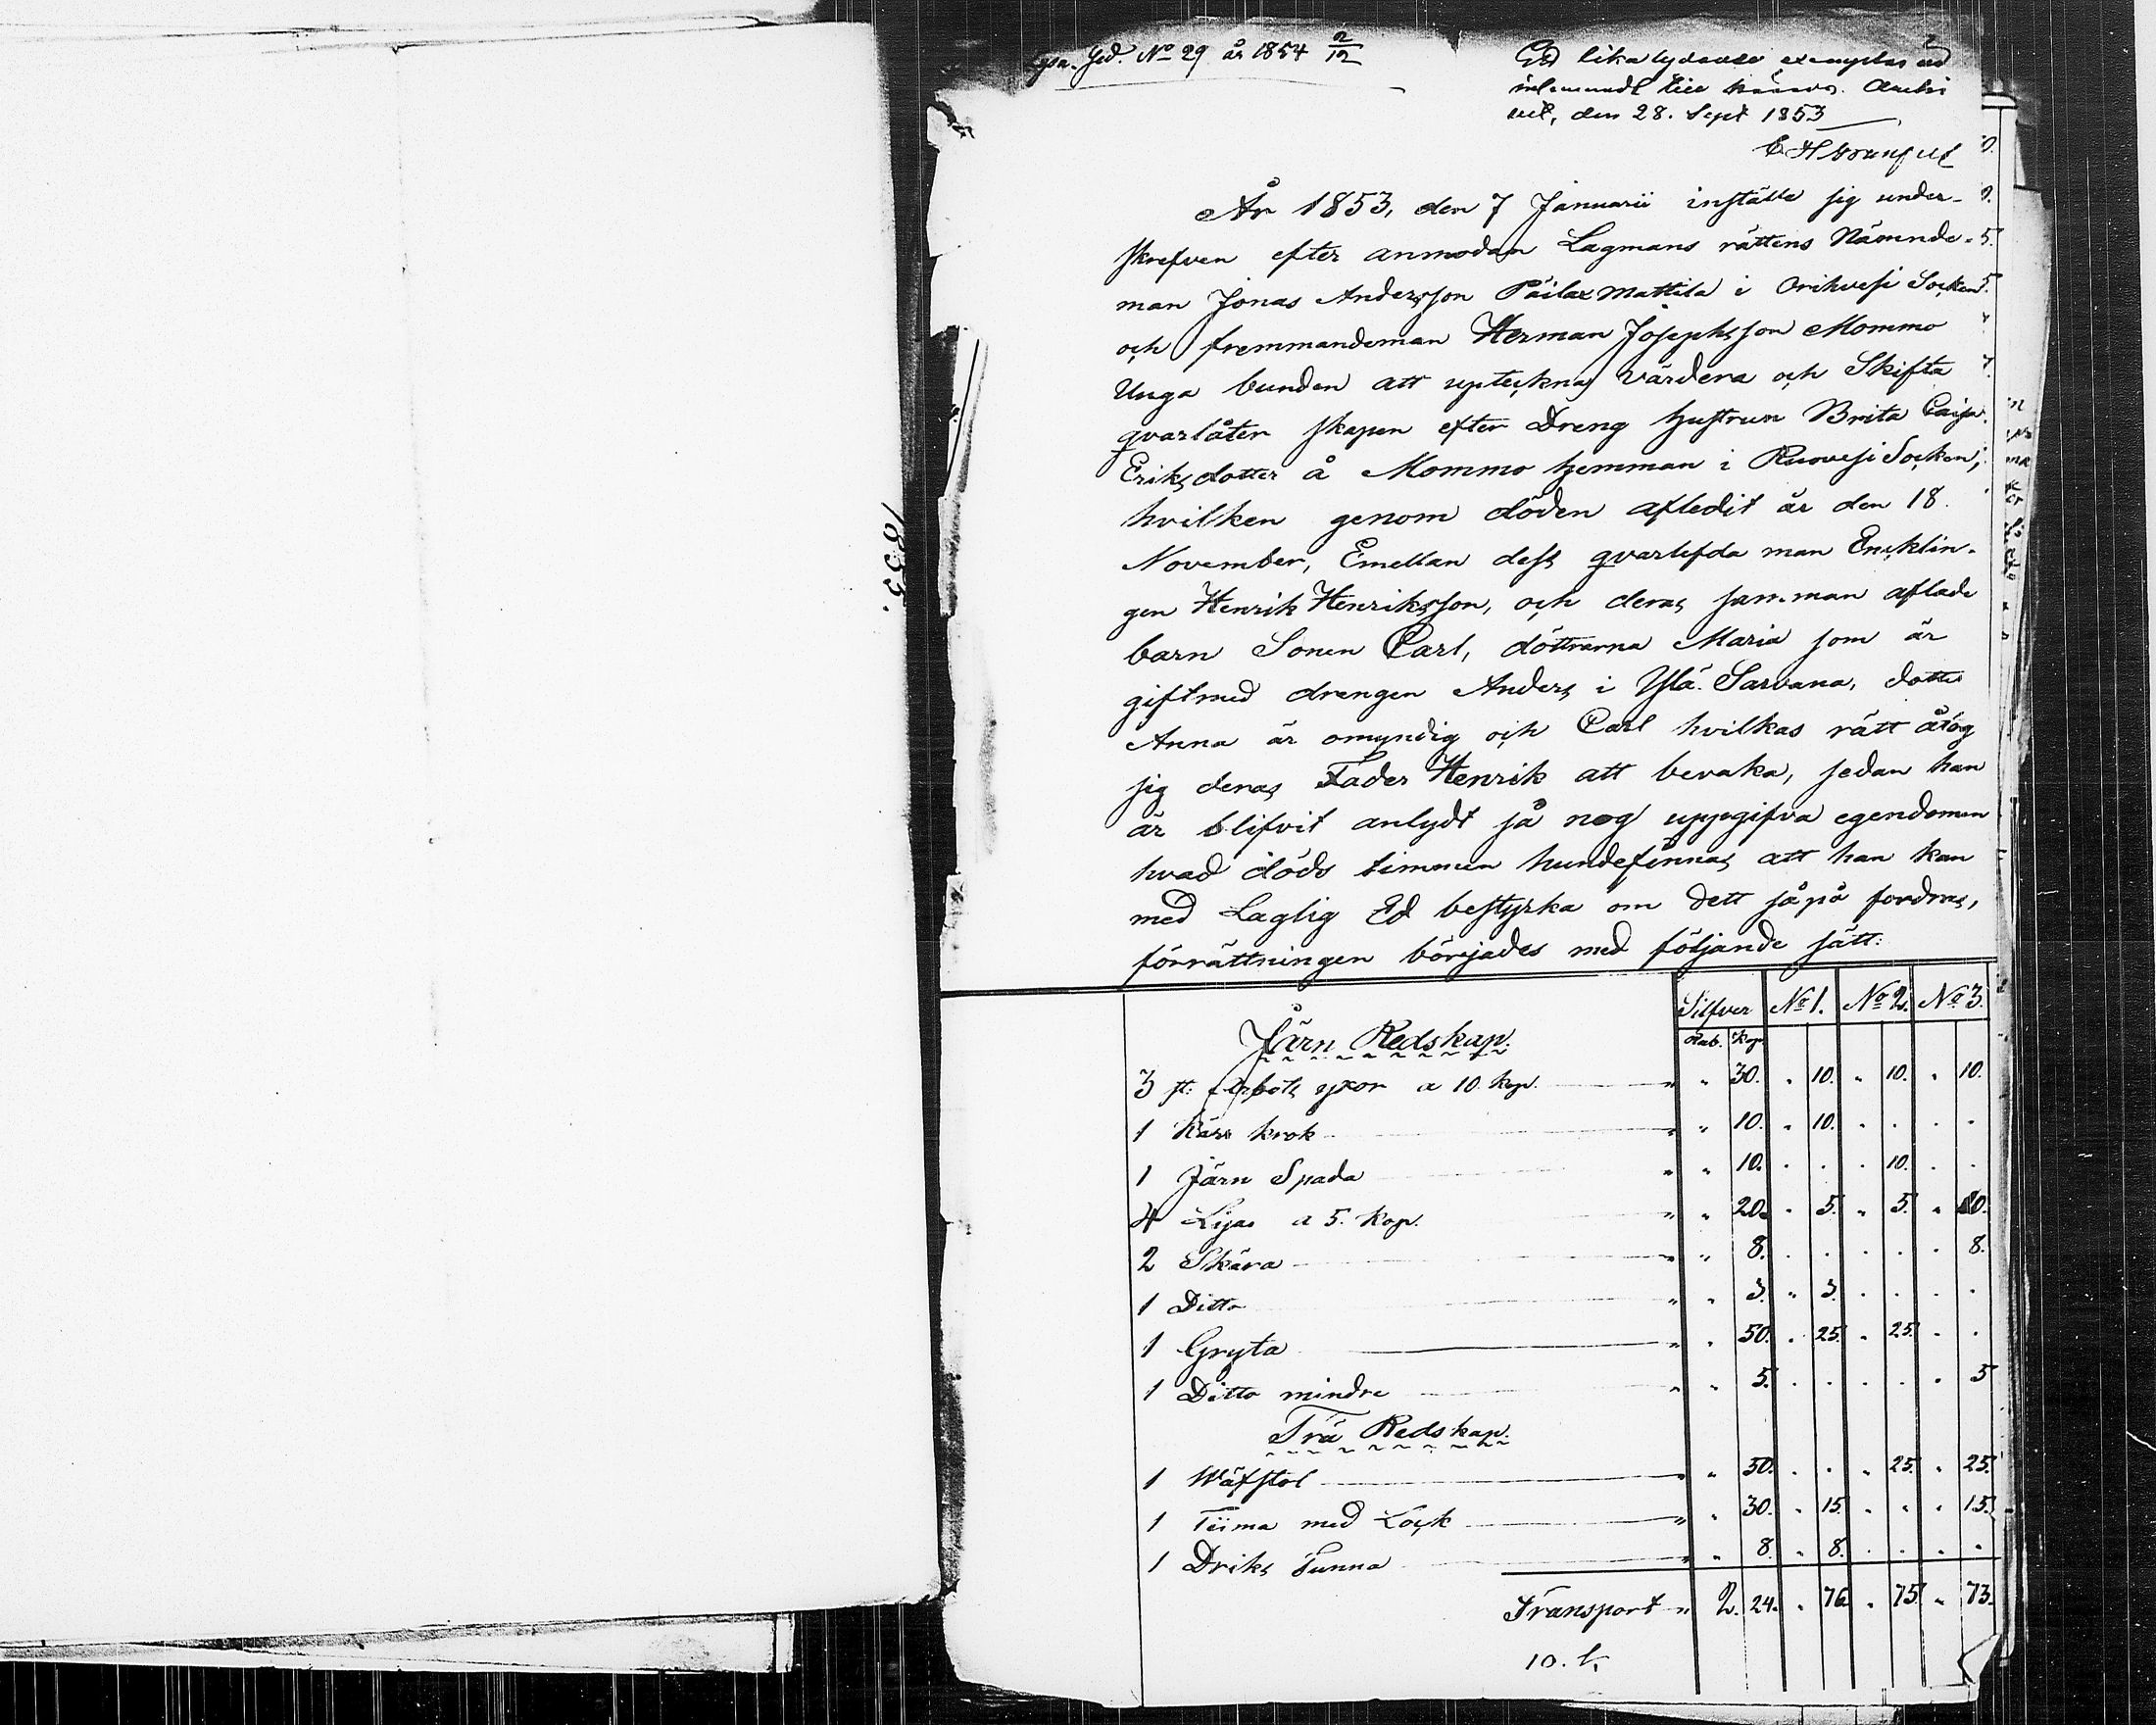 1853.
Ged. No 29 år 1854 2/12
2
Ett lika lydande exemplar
inlemnadt till härads. Archi
vet, den 28. Sept 1853
År 1853, den 7 Januarii instälte sig under-
skrefven efter anmodan Lagmans rättens Nämnde-
man Jonas Andersson Päilax Mattila i Orihvesi Socken
och fremmandeman Herman Josephsson Mommo
Unga bunden att upteckna värdera och Skifta
qvarlåten skapen efter Dreng hustrun Brita Caisa
Eriksdotter å Mommo hemman i Ruovesi Socken,
hvilken genom döden afledit är den 18.
November, Emellan dess qvarlefda man Encklin-
gen Henrik Henriksson, och deras samman aflade
barn Sonen Carl, döttrarna Maria som är
gift med drengen Anders i Ylä. Sarvana, dotter
Anna är omyndig och Carl hvilkas rätt åtog
sig deras Fader Henrik att bevaka, sedan han
är blifvit anlydt så nog uppgifva egendomen
hvad döds timmen hundefinnas att han kan
med Laglig Ed bestyrka om dett såpå fordras,
förrättningen börjades med följande sätt:
Silfver No 1. No 2. No 3.
Järn Redskap. Rub. Kop
3 st: yxor a 10 kop. " " 30. " 10. " 10. " 10.
1 krok " " 10. " 10. . . . .
1 Järn Spada " " 10. . . . 10. . .
4 Lijas a 5. Kop. " " 20. " 5. " 5. " 10.
2 Skära " " 8. . . . . . 8.
1 Ditto " " 3. " 3. . . . .
1 Gryta " " 50. . 25. " 25. . .
1 Ditto mindre " " 5. . . . . . 5
Trä Redskap.
1 Wäfstol " " 50. . . " 25. " 25.
1 Tiima med Lock " " 30. " 15. " " " 15.
1 Driks Tunna " " 8. " 8. . . . .
Transport " 2. 24. " 76. " 75. " 73.